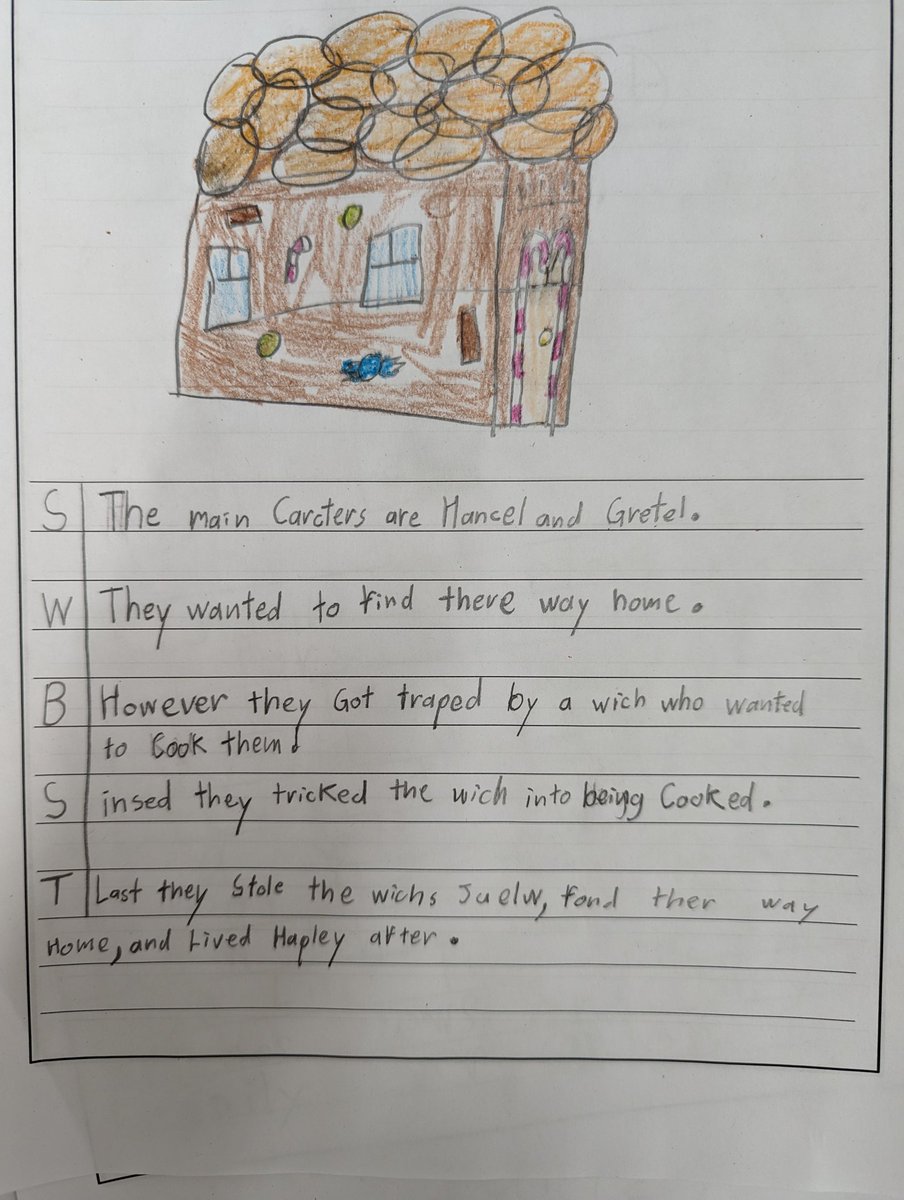 S The main Carcters are Hancel and Gretel.
W They wanted to find there way home.
B However they Got traped by a wich who wanted
to Cook them.
S insed they tricked the wich into being Cooked.
T Last they Stole the wichs Juelw, fond ther way
Home, and Lived Hapley after.